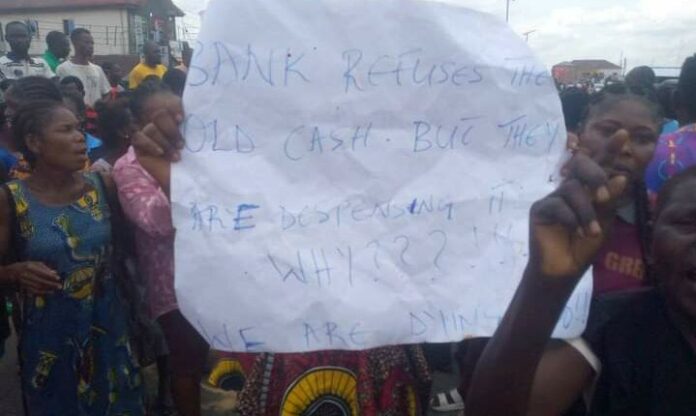 BANK REFUSES THE
OLD CASH. BUT THEY
ARE DESPENSING IT
WHY??? !!!
WE ARE DYING !!
GRE